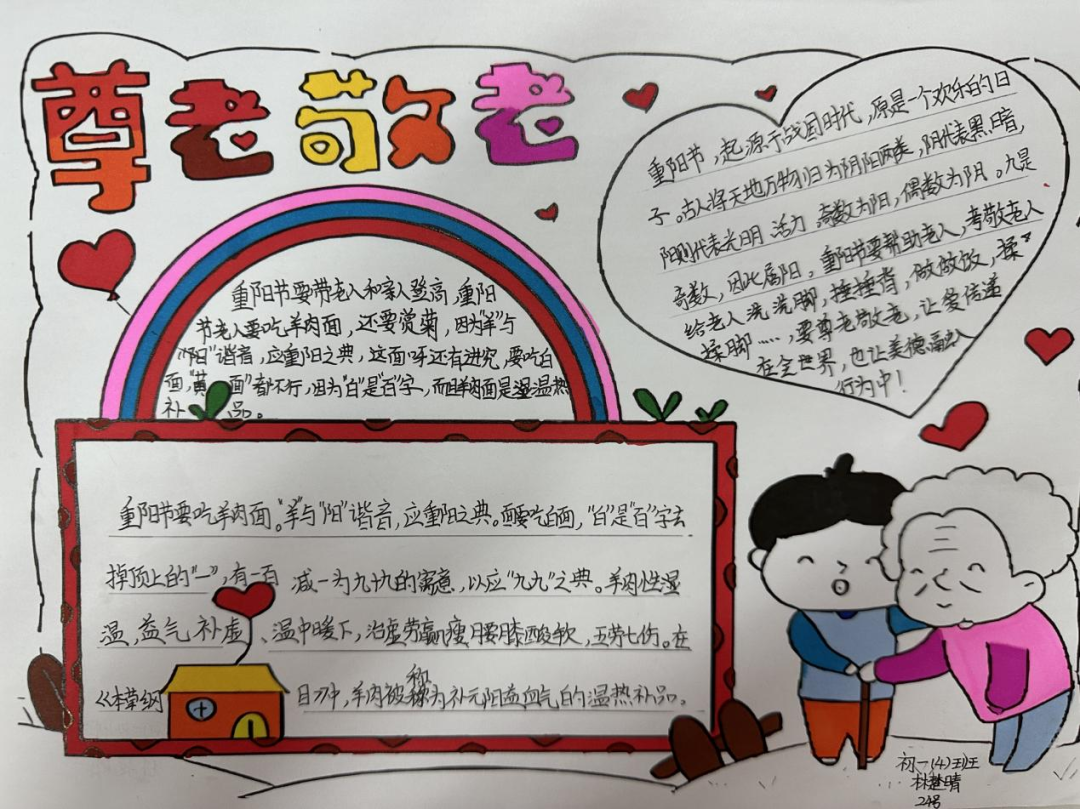 尊老敬老
重阳节要带老人和亲人登高,重阳
节老人要吃羊肉面,还要赏菊,因为"羊"与
"阳"谐音,应重阳之典,这面呀还有讲究,要吃白
面"黄面"都不行,因为"白"是"百"字,而且羊肉面是湿温热
补品。
重阳节,起源于战国时代,原是一个欢乐的日
子。古人将天地万物归为阴阳两类,阴代表黑暗,
阳则代表光明、活力,奇数为阳,偶数为阴。九是
奇数,因此属阳,重阳节要帮助老人,孝敬老人
给老人洗洗脚,捶捶背,做做饭,揉
揉脚……,要尊老敬老,让爱传递
在全世界,也让美德融入
行为中!
重阳节要吃羊肉面。"羊"与"阳"谐音,应重阳之典。面要吃白面,"白"是"百"字去
掉顶上的"一",有一百减一为九十九的寓意,以应"九九"之典。羊肉性湿
温,益气补虚、温中暖下,治虚劳羸瘦,腰膝酸软,五劳七伤。在
《本草纲目》中,羊肉被称为补元阳益血气的温热补品。
初一(4)班
林楚晴
24号